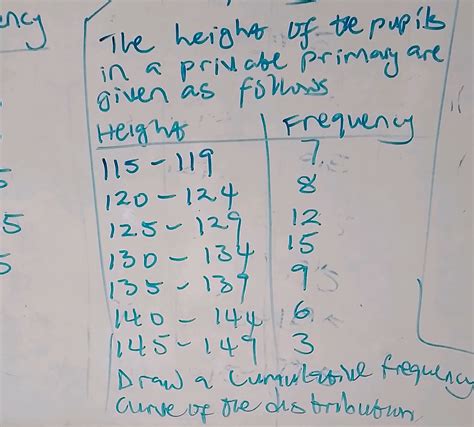 ency
The height of the pupils
in a private primary are
given as follows
Height Frequency
115 - 119 7
120 - 124 8
125 - 129 12
130 - 134 15
135 - 139 9
140 - 144 6
145 - 149 3
Draw a Cumulative frequency
curve of the distribution
5
5
5